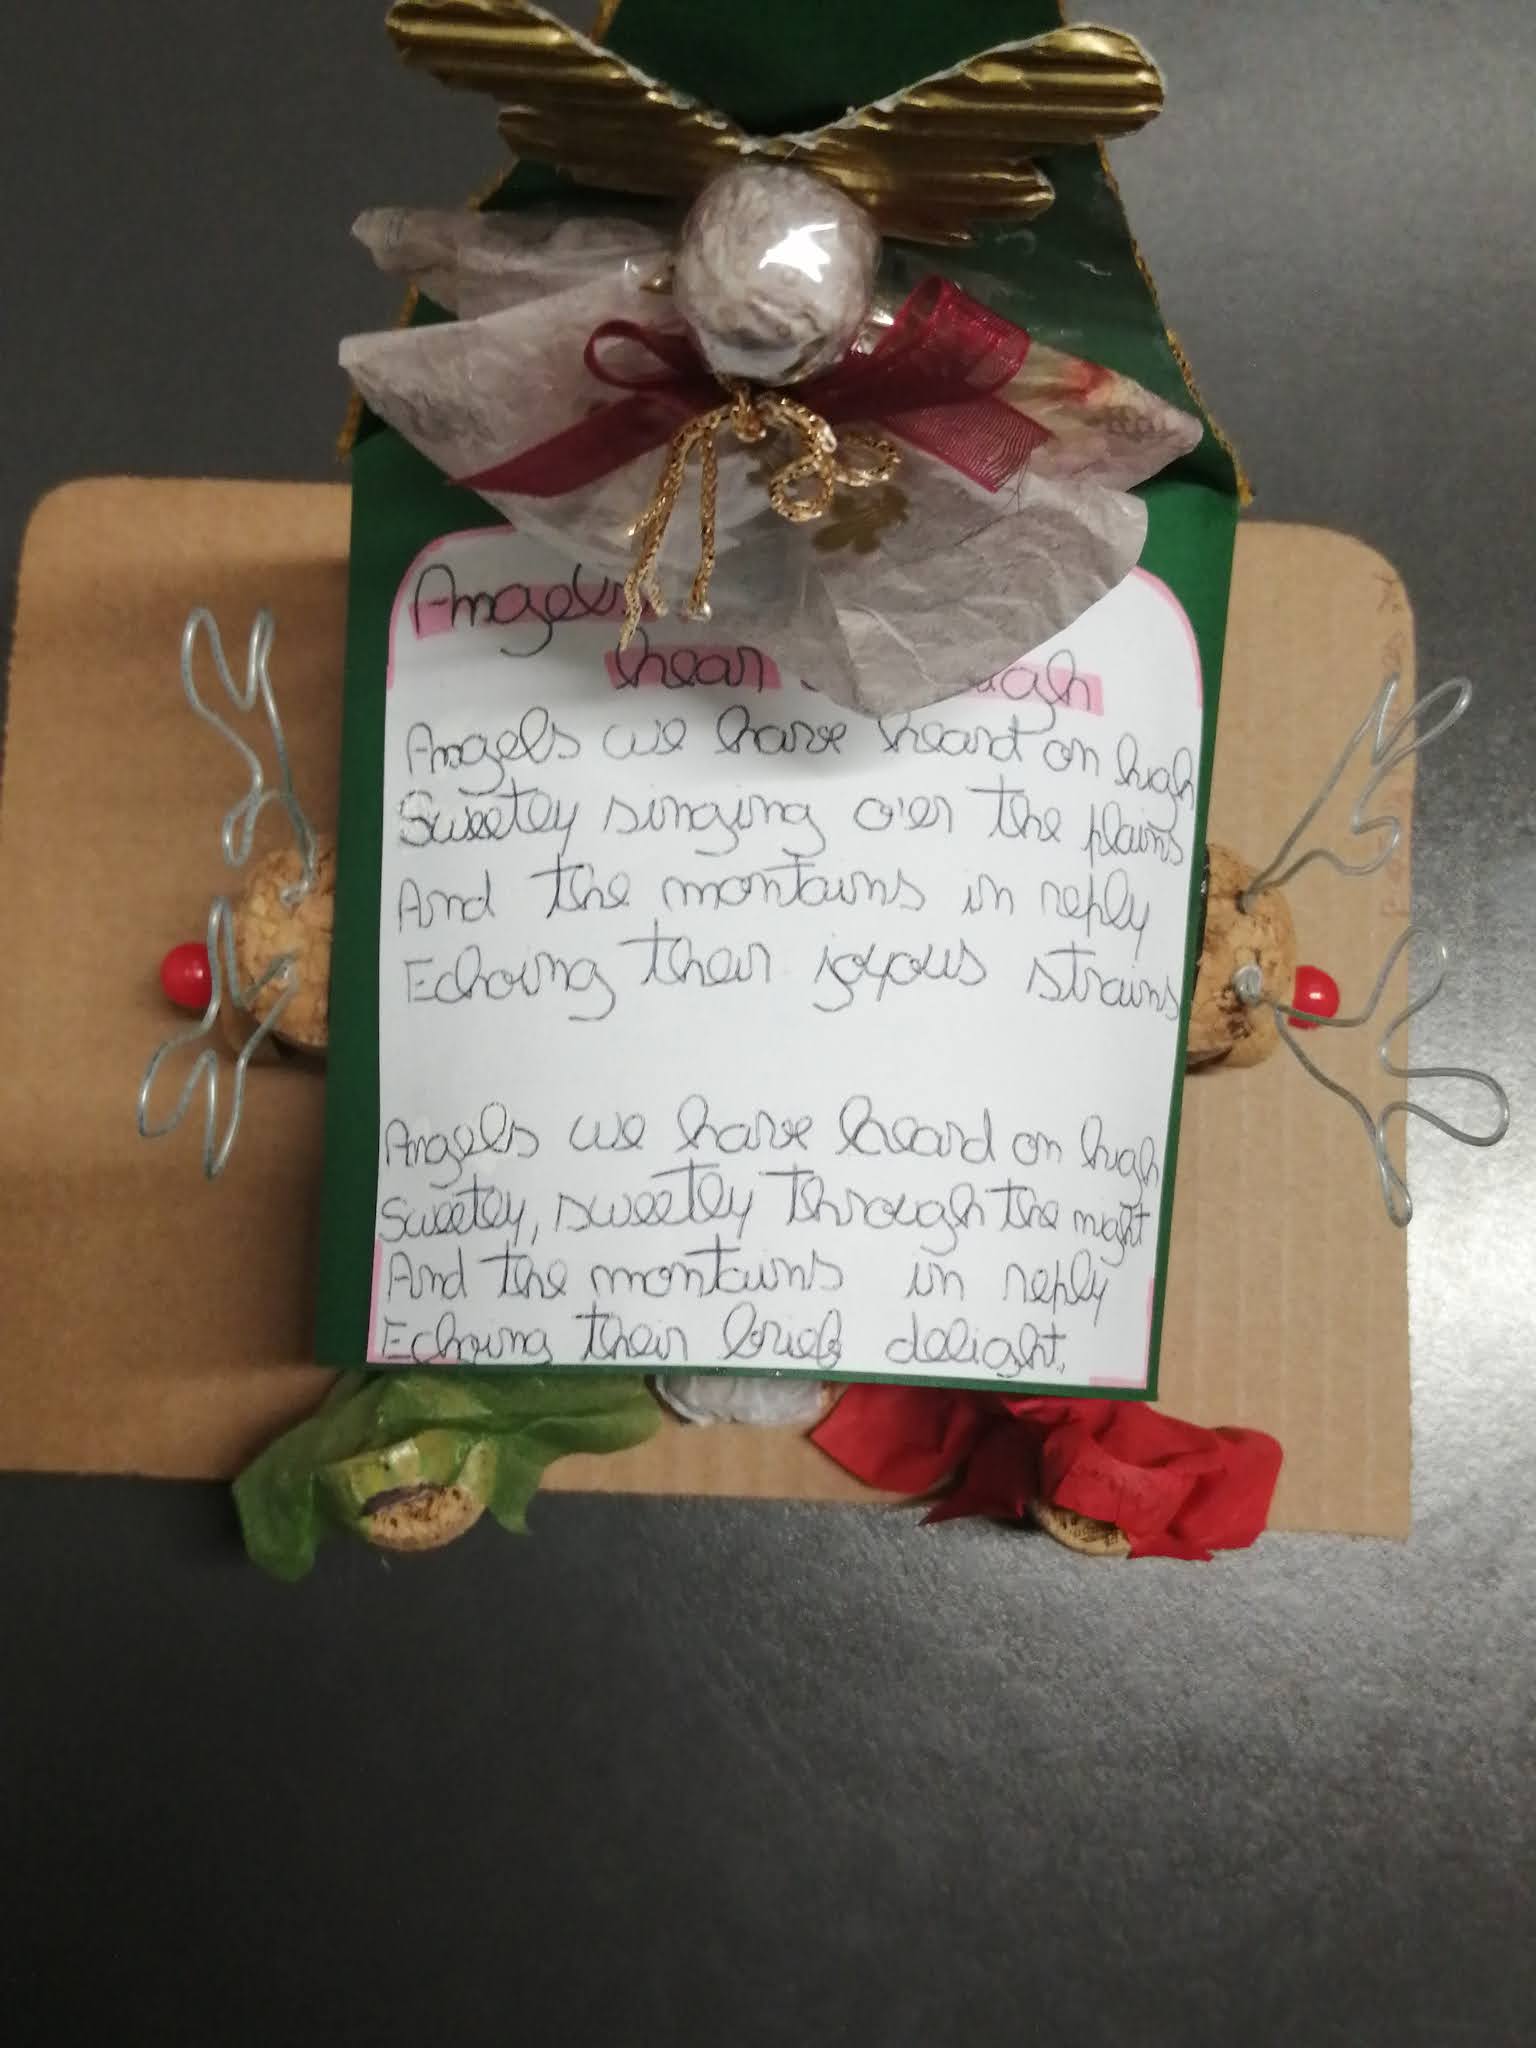 Angels
hear
Angels we have heard on high
Sweetly singing o'er the plains
And the montains in reply
Echoing their joyous strains
Angels we have heard on high
Sweetly, sweetly through the night
And the montains in reply
Echoing their brief delight.